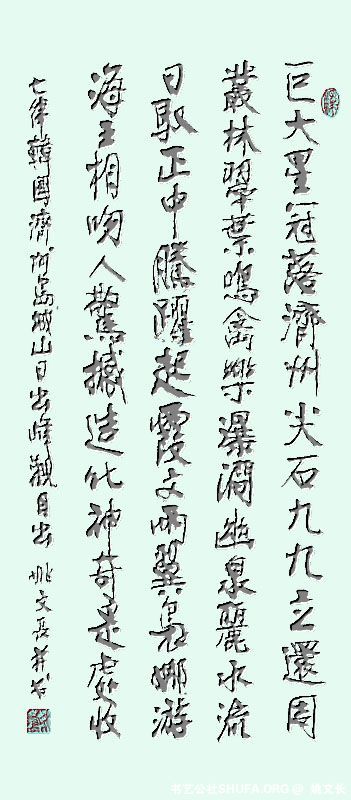 巨大星冠落濟州尖石九九立還周
叢林翠葉鳴禽樂瀑澗幽泉麗水流
日馭正中騰躍起霞文兩翼裊娜游
海王相吻人驚撼造化神奇是處收
七律韓國濟州島城山日出峰觀日出 姚文長并書
书艺公社SHUFA.ORG@ 姚文长